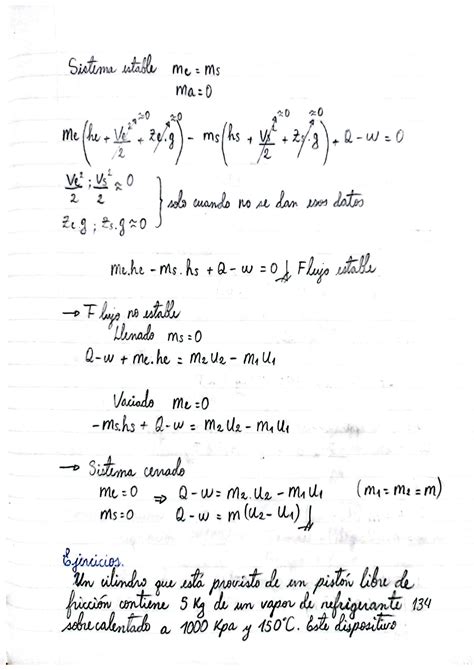 Sistema estable me = ms
ma = 0
me(he + Ve²/2 ≈0 + Ze.g ≈0) - ms(hs + Vs²/2 ≈0 + Zs.g ≈0) + Q - w = 0
Ve²/2 ; Vs²/2 ≈ 0
Ze g ; Zs.g ≈ 0 } solo cuando no se dan esos datos
me.he - ms.hs + Q - w = 0 ↓ Flujo estable
→ Flujo no estable
Llenado ms = 0
Q - w + me.he = m2u2 - m1u1
Vaciado me = 0
-mshs + Q - w = m2u2 - m1u1
→ Sistema cerrado
me = 0 ⇒ Q - w = m2.u2 - m1u1 (m1 = m2 = m)
ms = 0 Q - w = m(u2 - u1) ↓
Ejercicios.
Un cilindro que está provisto de un pistón libre de
fricción contiene 5 Kg de un vapor de refrigerante 134
sobrecalentado a 1000 Kpa y 150°C. Este dispositivo